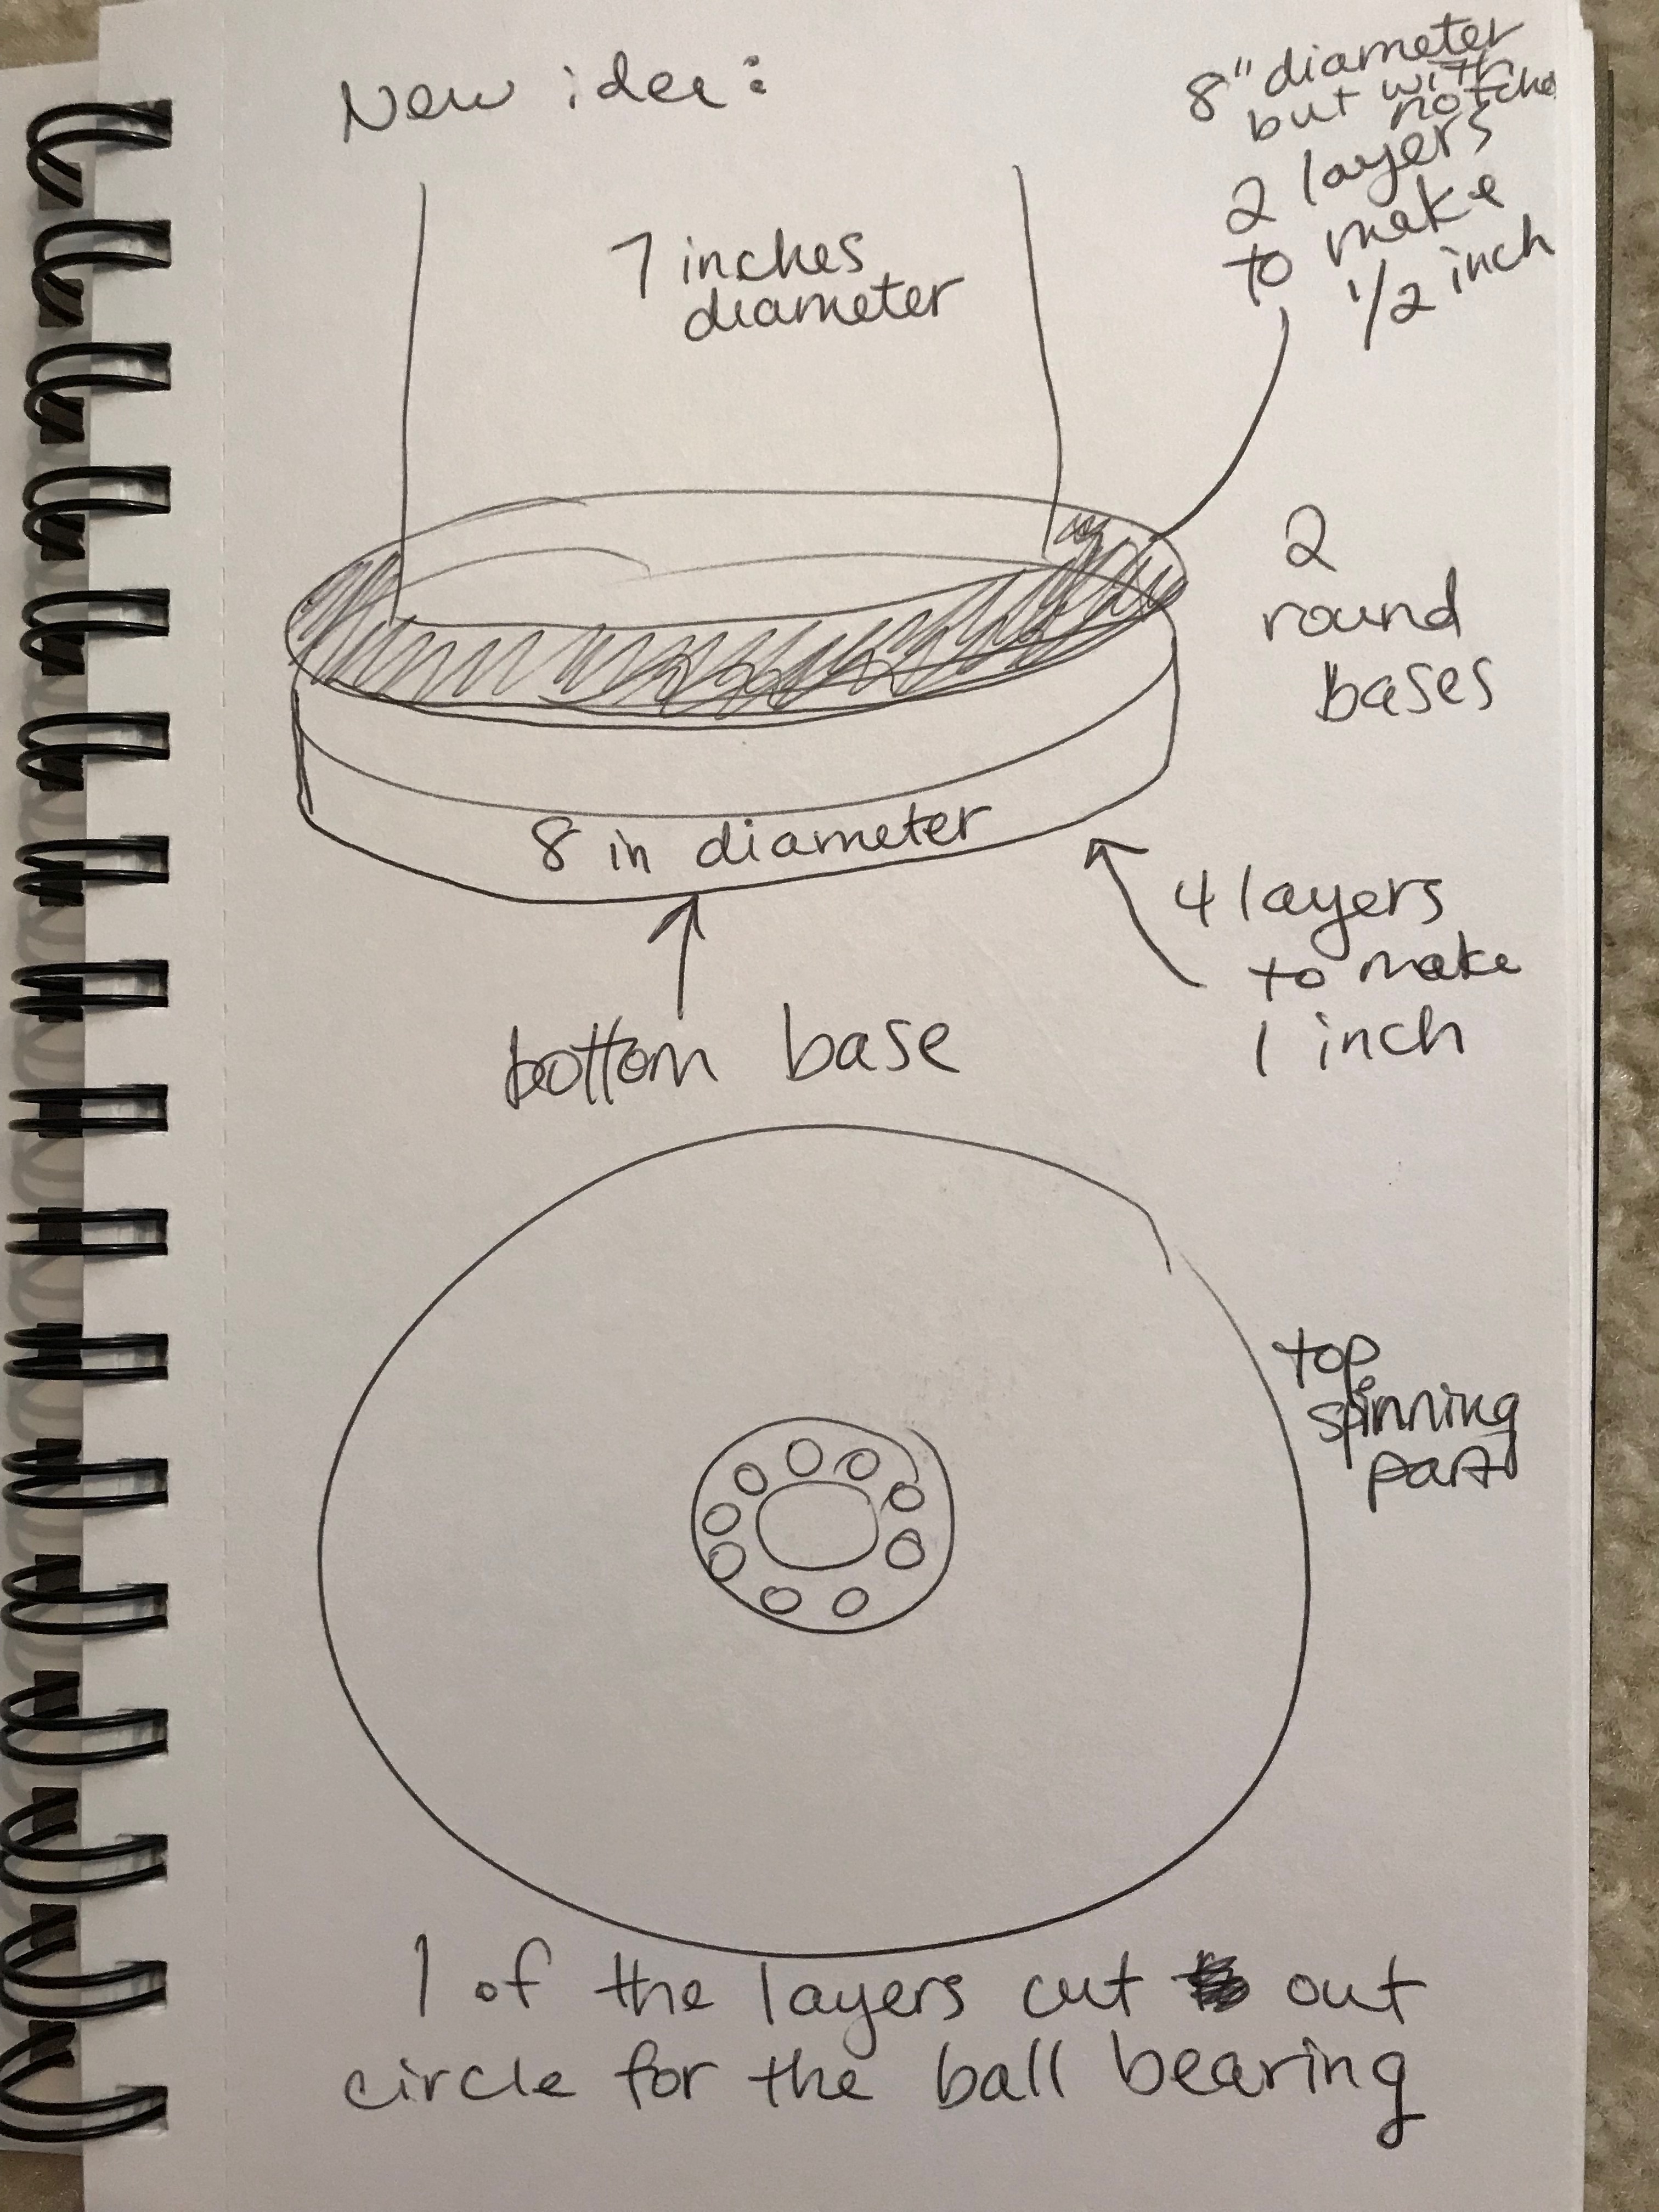 New idea:
8" diameter
but with
notche
2 layers
to make
1/2 inch
7 inches
diameter
2
round
bases
8 in diameter
4 layers
to make
1 inch
bottom base
top
spinning
part
1 of the layers cut out
circle for the ball bearing